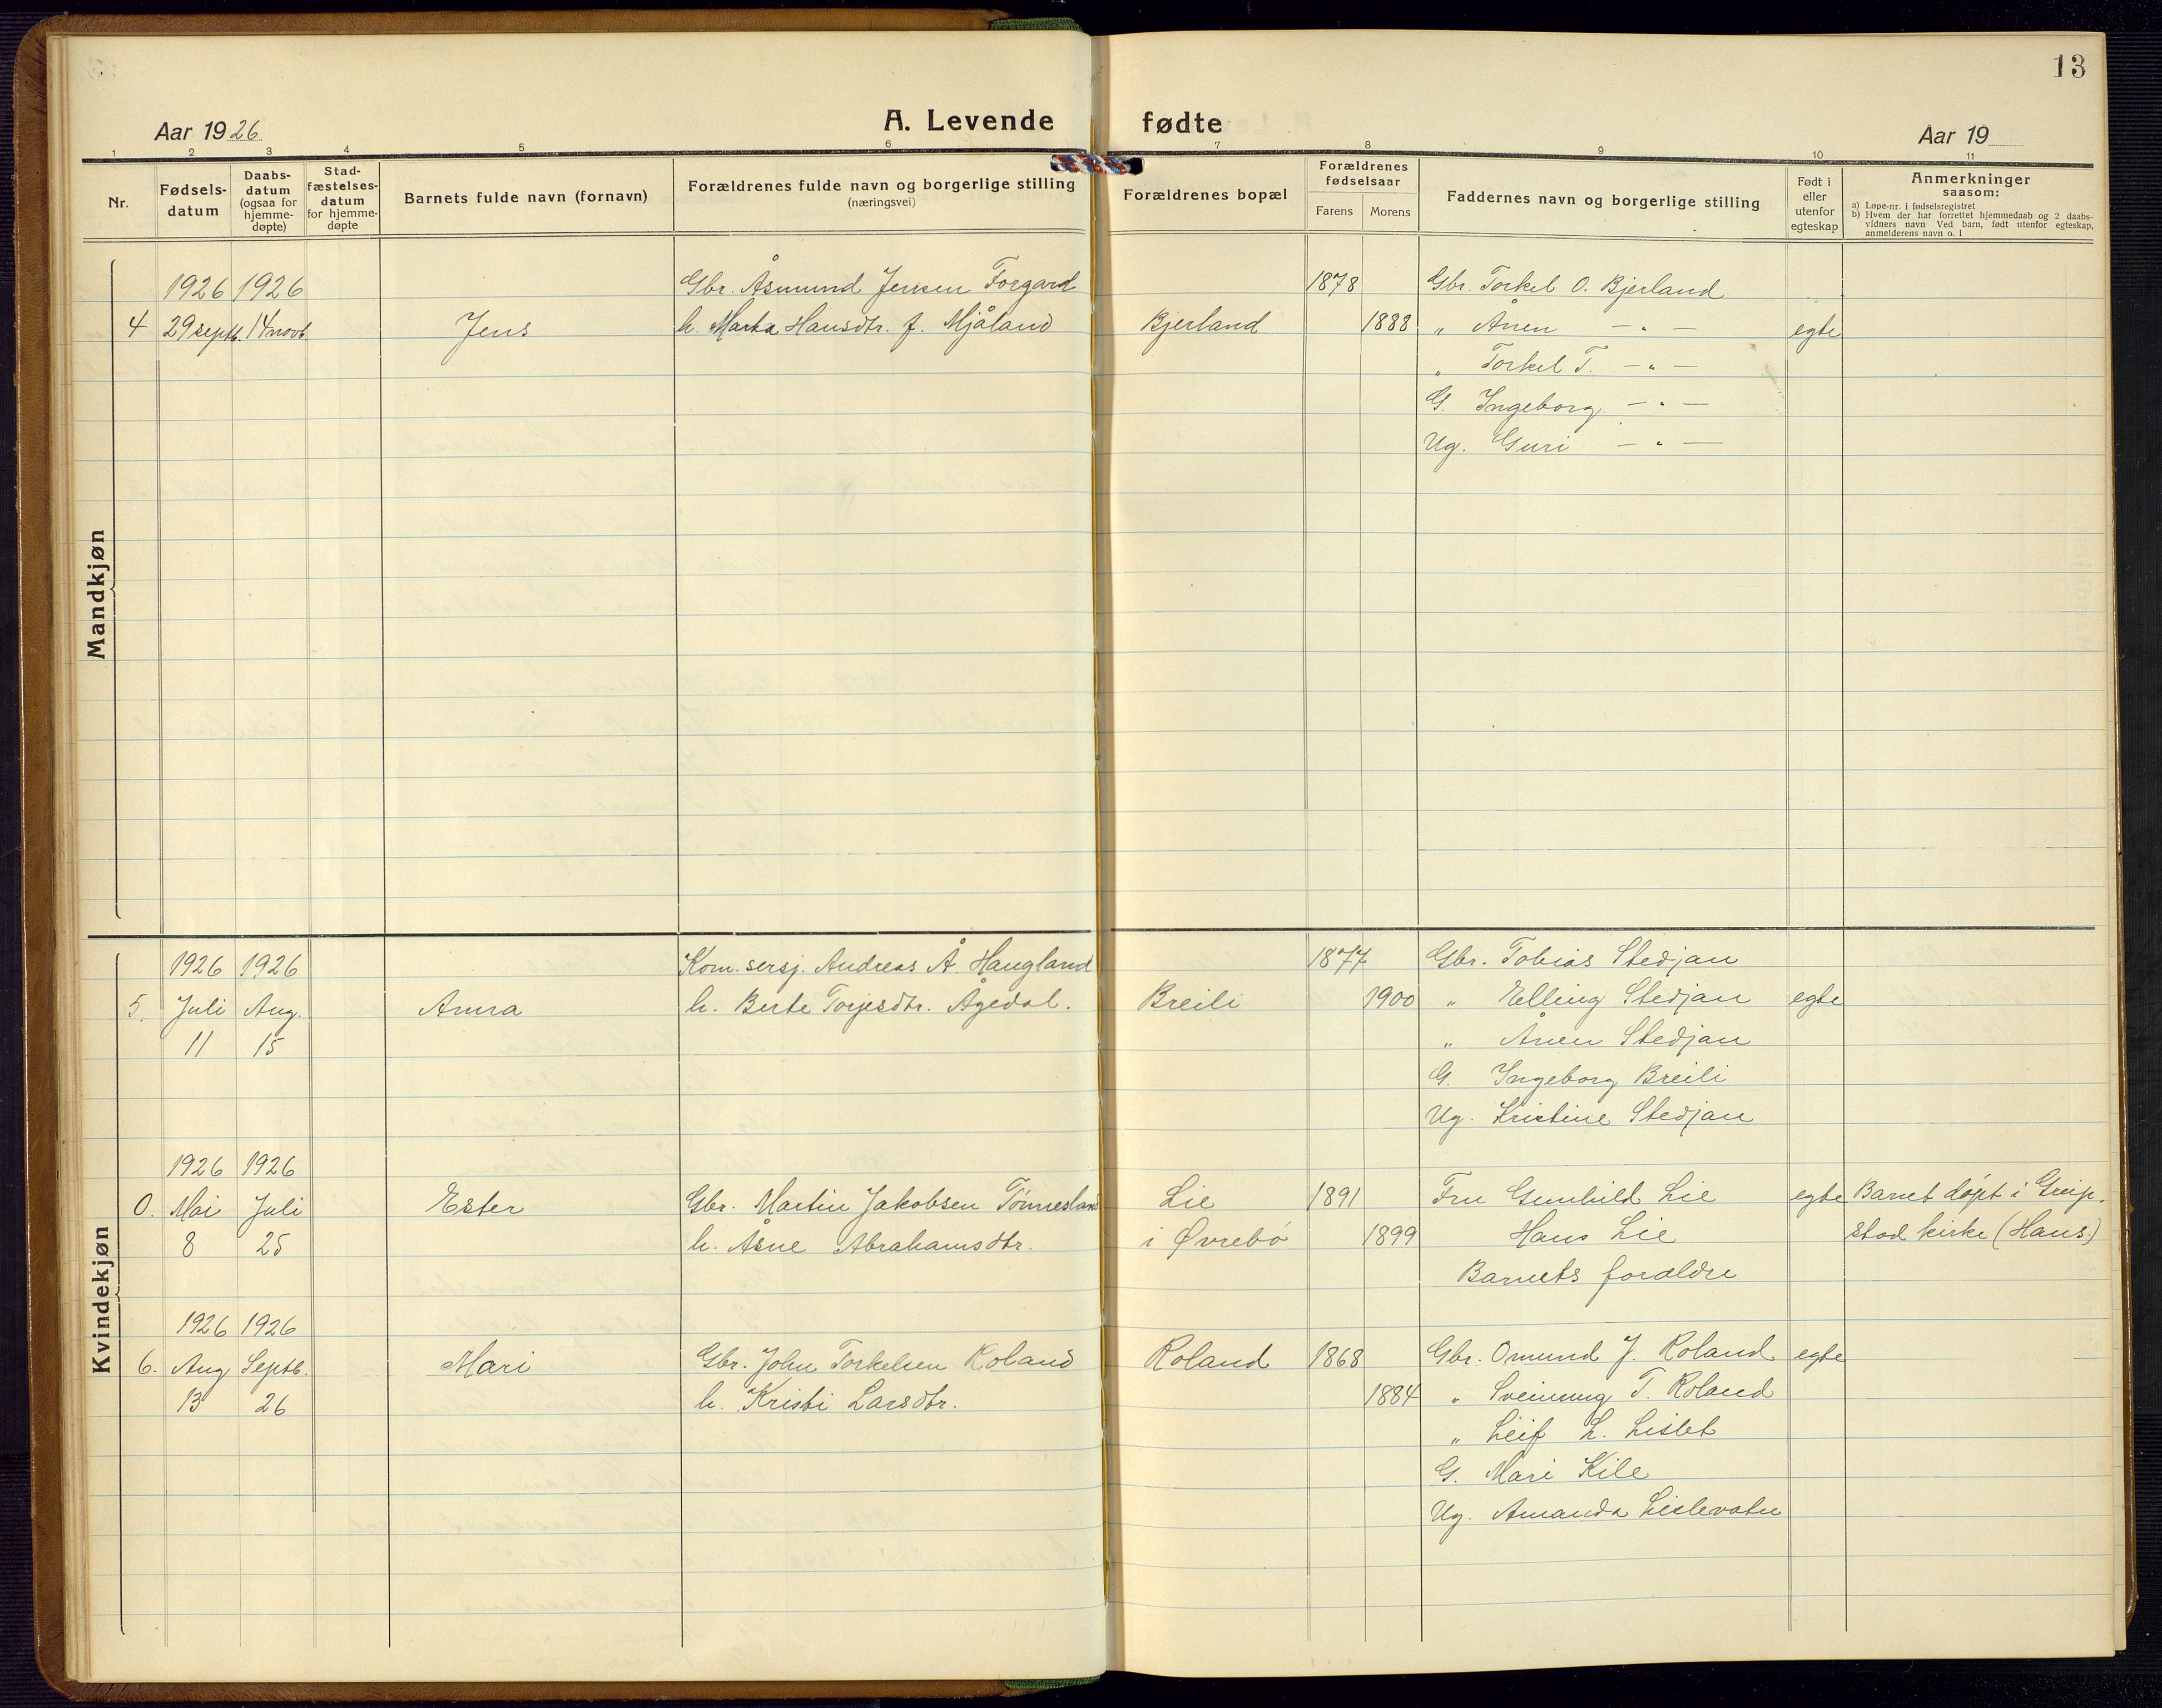 13
A. Levende fødte
Aar 1926
Aar 19
1 2 3 4 5 6 7 8 9 10 11
Nr.
Fødsels-datum
Daabs-datum (ogsaa for hjemme-døpte)
Stad-fæstelses-datum for hjemme-døpte
Barnets fulde navn (fornavn)
Forældrenes fulde navn og borgerlige stilling (næringsvei)
Forældrenes bopæl
Forældrenes fødselsaar
Farens Morens
Faddernes navn og borgerlige stilling
Født i eller utenfor egteskap
Anmerkninger saasom:
a) Løpe-nr. i fødselsregistret
b) Hvem der har forrettet hjemmedaab og 2 daabs-vidners navn Ved barn, født utenfor egteskap, anmelderens navn o. l
Mandkjøn
1926 1926 Gbr. Åsmund Jensen Forgard 1878 Gbr. Torkel O. Bjerland
4 29 septb. 14 novb. Jens h. Marta Hansdtr. f. Mjåland Bjerland 1888 " Ånen — " — egte
" Torkel T. — " —
G. Ingeborg — " —
Ug. Guri — " —
Kvindekjøn
1926 1926 Kom. sersj. Andreas Å. Haugland 1877 Gbr. Tobias Stedjan
5. Juli Aug. Anna h. Berte Torjesdtr. Ågedal. Breili 1900 " Elling Stedjan egte
11 15 " Ånen Stedjan
G. Ingeborg Breili
Ug. Kristine Stedjan
1926 1926
0. Mai Juli Ester Gbr. Martin Jakobsen Tønnesland Lie 1891 Fru Gunhild Lie egte Barnet døpt i Greip.
8 25 h. Åsne Abrahamsdtr. i Øvrebø 1899 Hans Lie stad kirke (Hans.)
Barnets foraldre
1926 1926
6. Aug Septb. Mari Gbr. John Torkelsen Roland Roland 1868 Gbr. Omund J. Roland egte
13 26 h. Kristi Larsdtr. 1884 " Sveinung T. Roland
" Leif L. Lislet
G. Mari Kile
Ug. Amanda Lislevatn